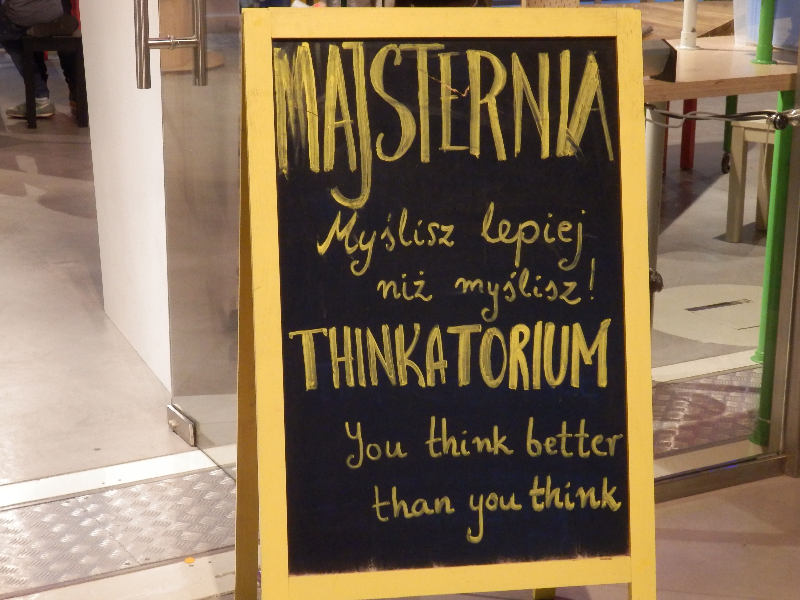 MAJSTERNIA
Myślisz lepiej
niż myślisz!
THINKATORIUM
You think better
than you think